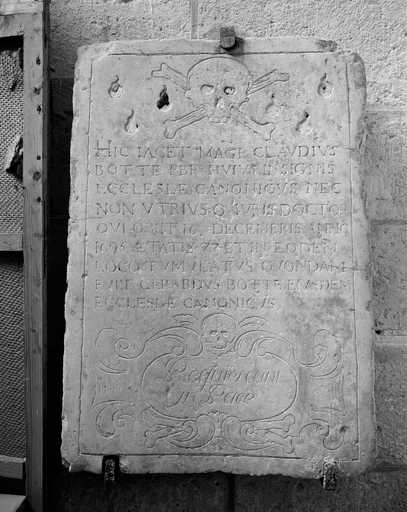 HIC IACET MAGR CLAVDIVS
BOTTE PBR HVIVS INSIGNIS
ECCLESIÆ CANONICVS NEC
NON VTRIVSQ IVRIS DOCTOR
QVI OBIIT DECEMBRIS ANNI
1695 ÆTATIS 77 ET IN EODEM
LOCO TVMVLATVS QVONDAM
FVIT GERARDVS BOTTE EIVSDEM
ECCLESIÆ CANONICVS
Requiescant
in Pace